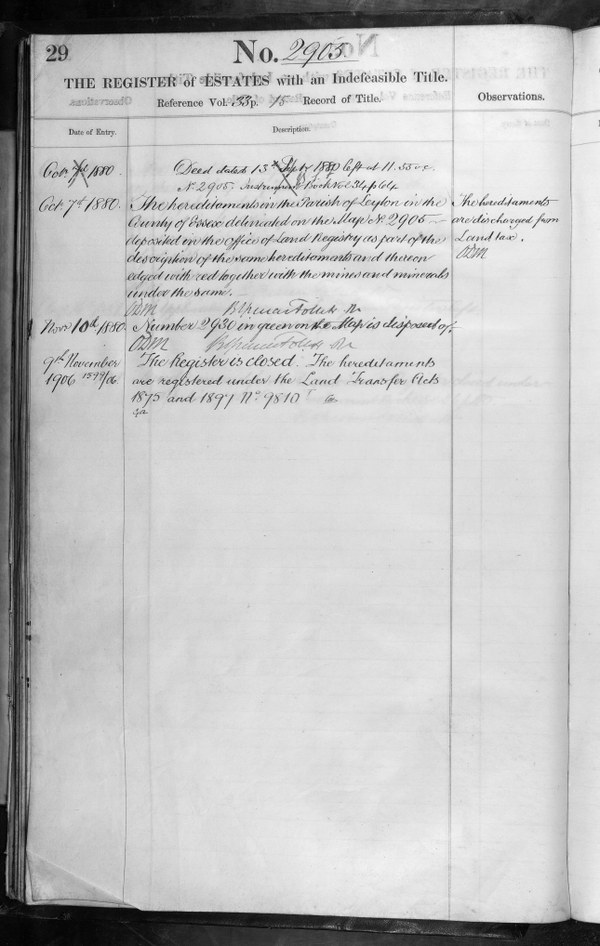 29
No. 2905
THE REGISTER of ESTATES with an Indefeasible Title.
Reference Vol. 33 p. 15 Record of Title.
Observations.
Date of Entry.
Description.
Octr 7th 1880
Deed dated 13th Septr 1880 left at 11.55 oc.
No 2905. Instrument Book Vol 34 p
Oct 7th 1880.
The hereditaments in the Parish of Leyton in the
County of Essex delineated on the Map No 2905
deposited in the Office of Land Registry as part of the
description of the same hereditaments and thereon
edged with red together with the mines and minerals
under the same.
The hereditaments
are discharged from
Land tax.
Novr 10th 1880
Number 2930 in green on the Map is disposed of.
9th November
1906
The Register is closed. The hereditaments
are registered under the Land Transfer Acts
1875 and 1897 No 9810